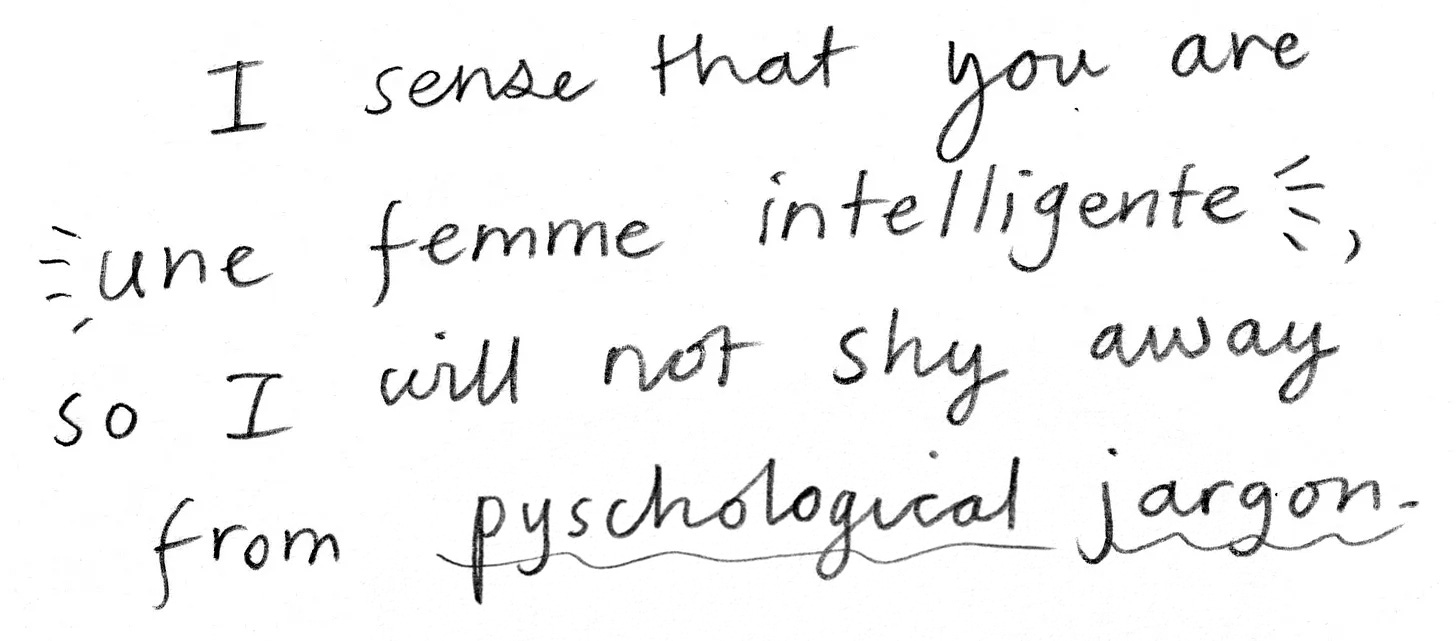 I sense that you are
une femme intelligente,
so I will not shy away
from pyschological jargon.